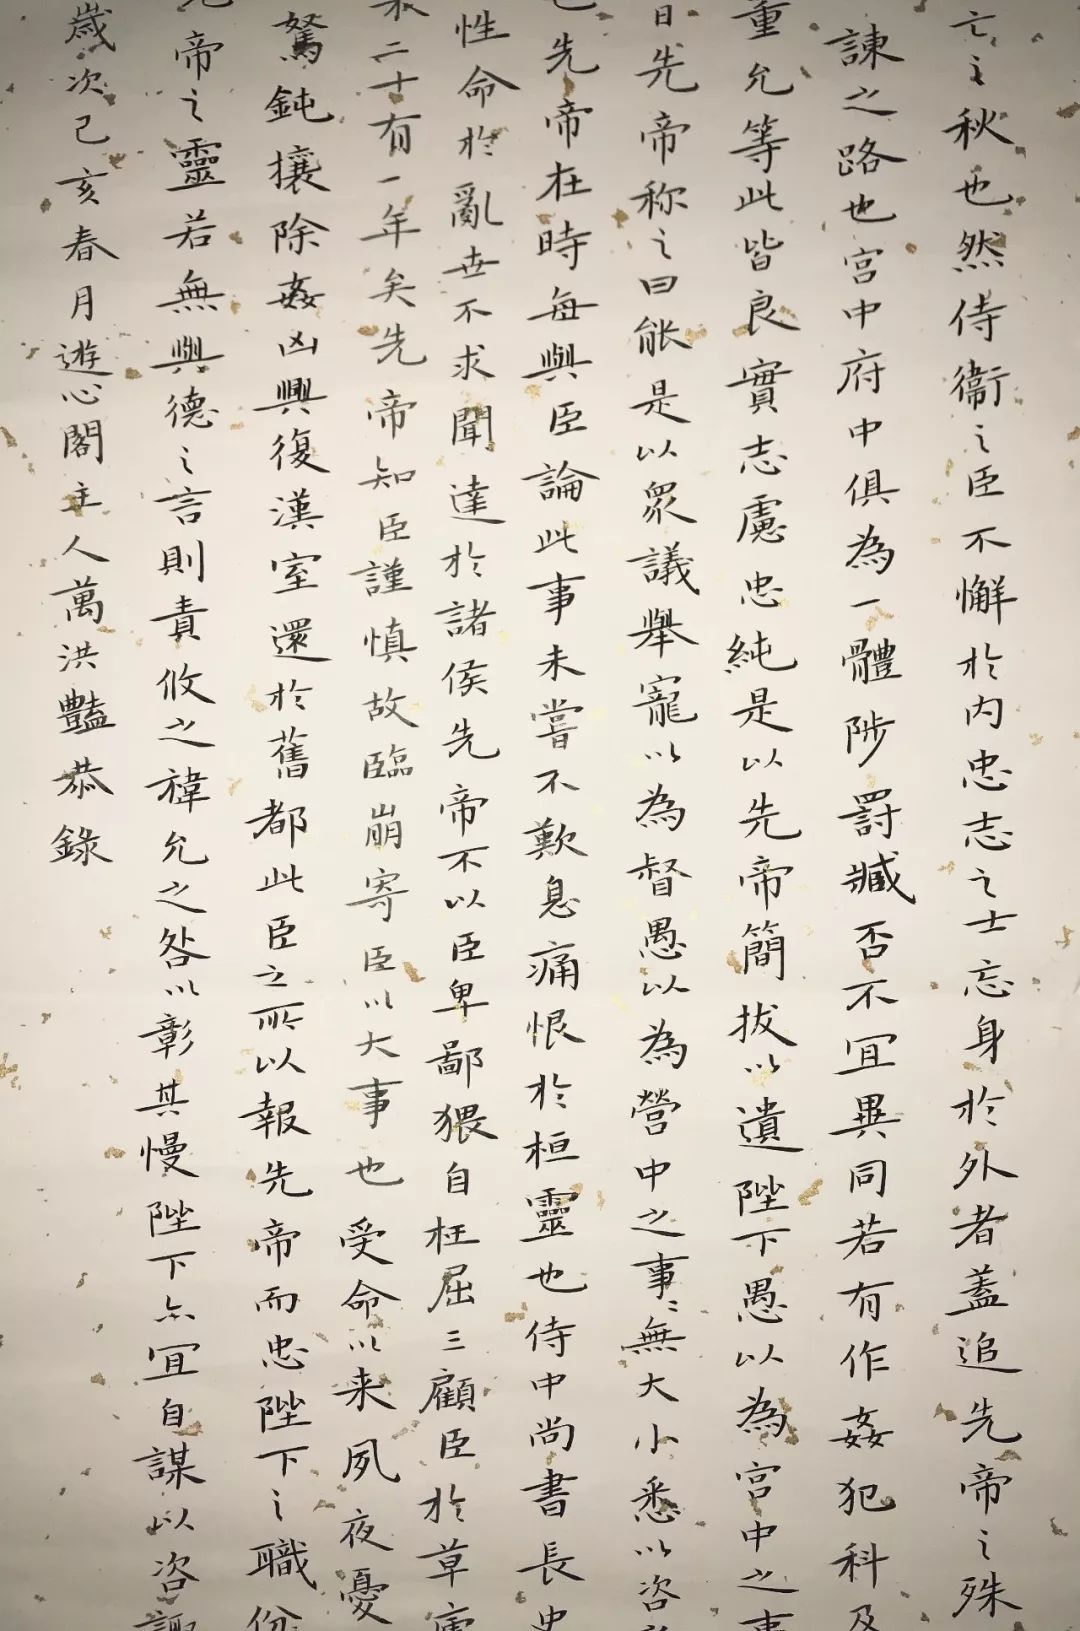 亡之秋也然侍衞之臣不懈於內忠志之士忘身於外者蓋追先帝之殊
諫之路也宮中府中俱為一體陟罰臧否不宜異同若有作姦犯科及
重允等此皆良實志慮忠純是以先帝簡拔以遺陛下愚以為宮中之事
日先帝称之曰能是以眾議舉寵以為督愚以為營中之事〻無大小悉以咨
也先帝在時每與臣論此事未嘗不歎息痛恨於桓靈也侍中尚書長史
性命於亂世不求聞達於諸侯先帝不以臣卑鄙猥自枉屈三顧臣於草廬
來二十有一年矣先帝知臣謹慎故臨崩寄臣以大事也受命以来夙夜憂
駑鈍攘除姦凶興復漢室還於舊都此臣之所以報先帝而忠陛下之職份
先帝之靈若無興德之言則責攸之禕允之咎以彰其慢陛下亦宜自謀以咨諏
歲次己亥春月遊心閣主人萬洪豔恭錄